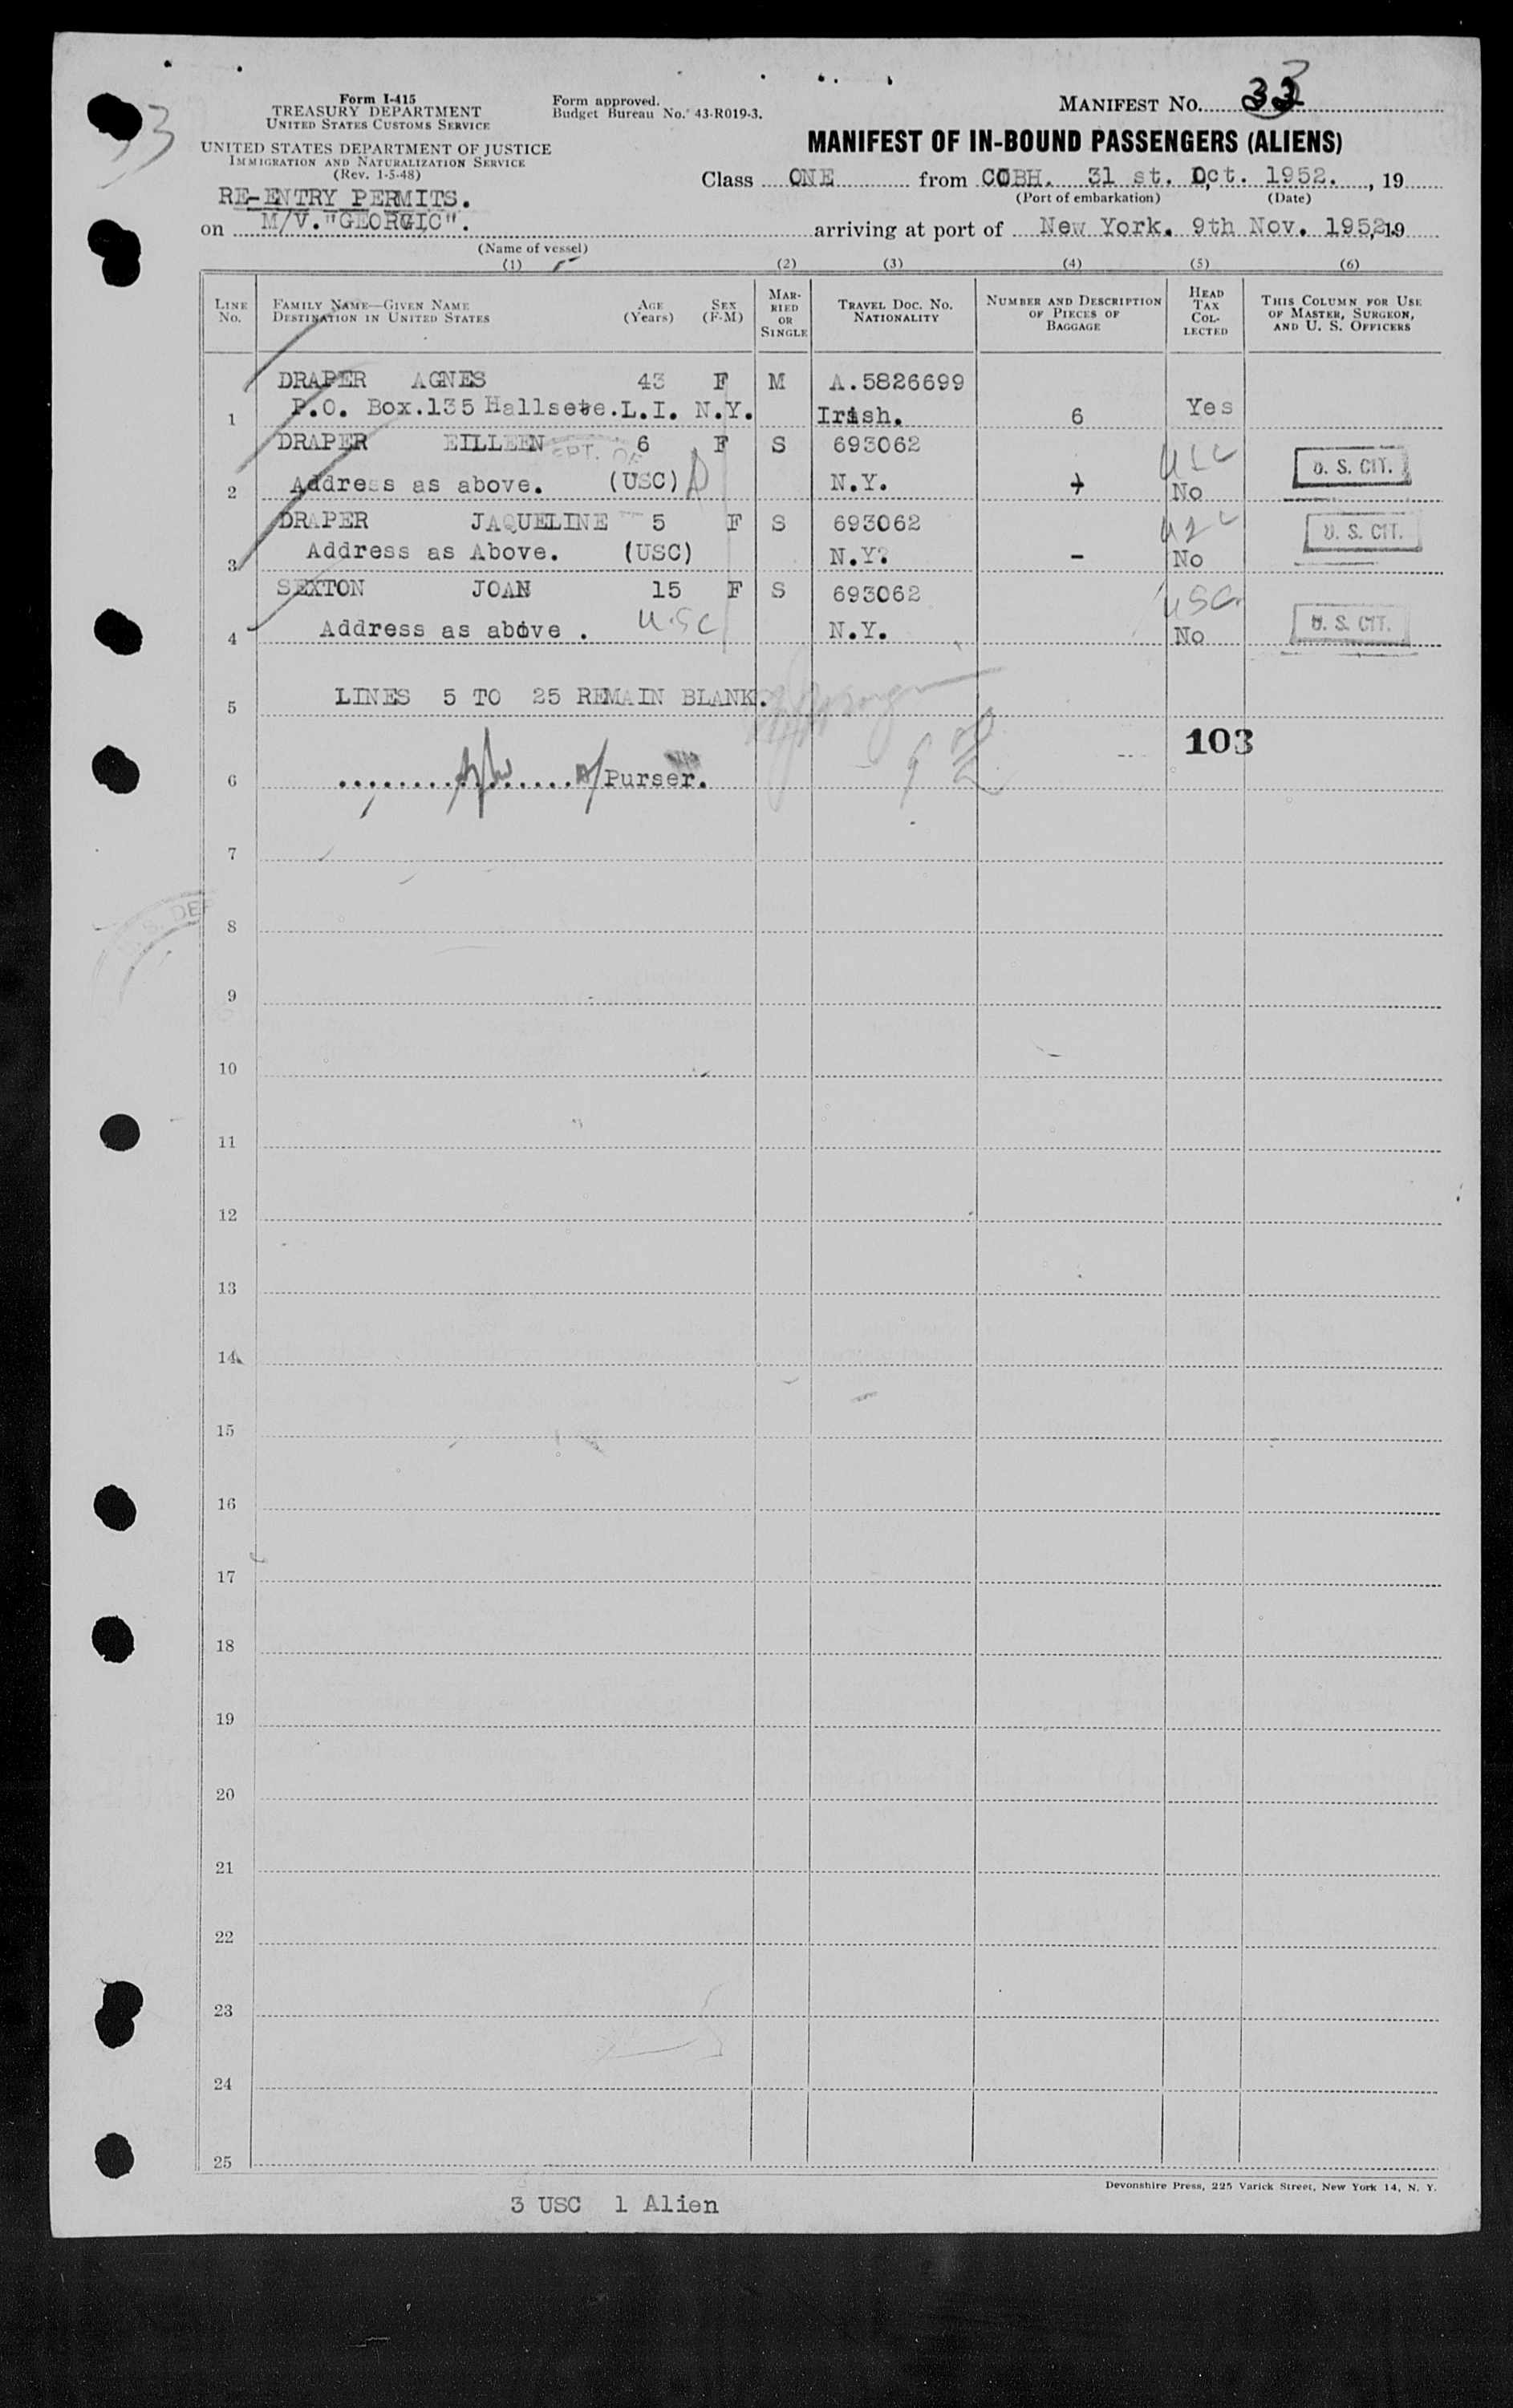 33
Form I-415
TREASURY DEPARTMENT
UNITED STATES CUSTOMS SERVICE
UNITED STATES DEPARTMENT OF JUSTICE
IMMIGRATION AND NATURALIZATION SERVICE
(Rev. 1-5-48)
Form approved.
Budget Bureau No. 43-R019-3.
MANIFEST NO. 33
MANIFEST OF IN-BOUND PASSENGERS (ALIENS)
RE-ENTRY PERMITS.
Class ONE from COBH. 31 st. Oct. 1952. , 19
(Port of embarkation) (Date)
on M/V."GEORGIC". arriving at port of New York. 9th Nov. 1952, 19
(Name of vessel)
(1) (2) (3) (4) (5) (6)
LINE NO. FAMILY NAME—GIVEN NAME DESTINATION IN UNITED STATES AGE (Years) SEX (F-M) MARRIED OR SINGLE TRAVEL DOC. NO. NATIONALITY NUMBER AND DESCRIPTION OF PIECES OF BAGGAGE HEAD TAX COLLECTED THIS COLUMN FOR USE OF MASTER, SURGEON, AND U. S. OFFICERS
DRAPER AGNES 43 F M A.5826699
1 P.O. Box.135 Hallsete.L.I. N.Y. Irish. 6 Yes
DRAPER EILLEEN 6 F S 693062 USC U. S. CIT.
2 Address as above. (USC) N.Y. No
DRAPER JAQUELINE 5 F S 693062 USC U. S. CIT.
3 Address as Above. (USC) N.Y. - No
SEXTON JOAN 15 F S 693062 USC. U. S. CIT.
4 Address as above . U.SC N.Y. No
5 LINES 5 TO 25 REMAIN BLANK.
103
6 A/Purser.
7
8
9
10
11
12
13
14
15
16
17
18
19
20
21
22
23
24
25
Devonshire Press, 225 Varick Street, New York 14, N. Y.
3 USC 1 Alien